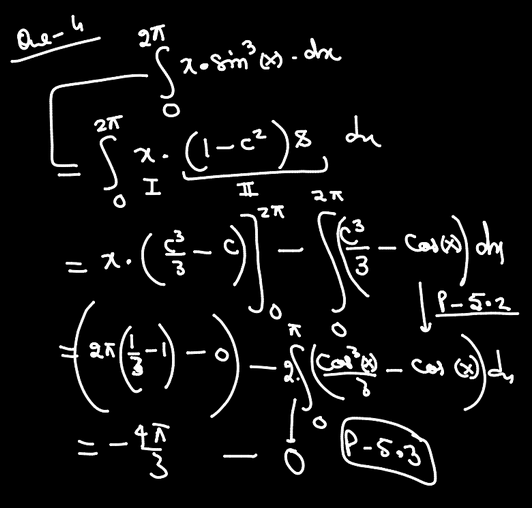 Que-4
∫₀^{2π} x·sin³(x)·dx
= ∫₀^{2π} x·(1-c²)s dx
I II
= x·(c³/3 - c)]₀^{2π} - ∫₀^{2π} (c³/3 - cos(x)) dx
P-5.2
= (2π(1/3 - 1) - 0) - 2·∫₀^{π} (cos³(x)/3 - cos(x)) dx
= -4π/3 - 0 P-5.3